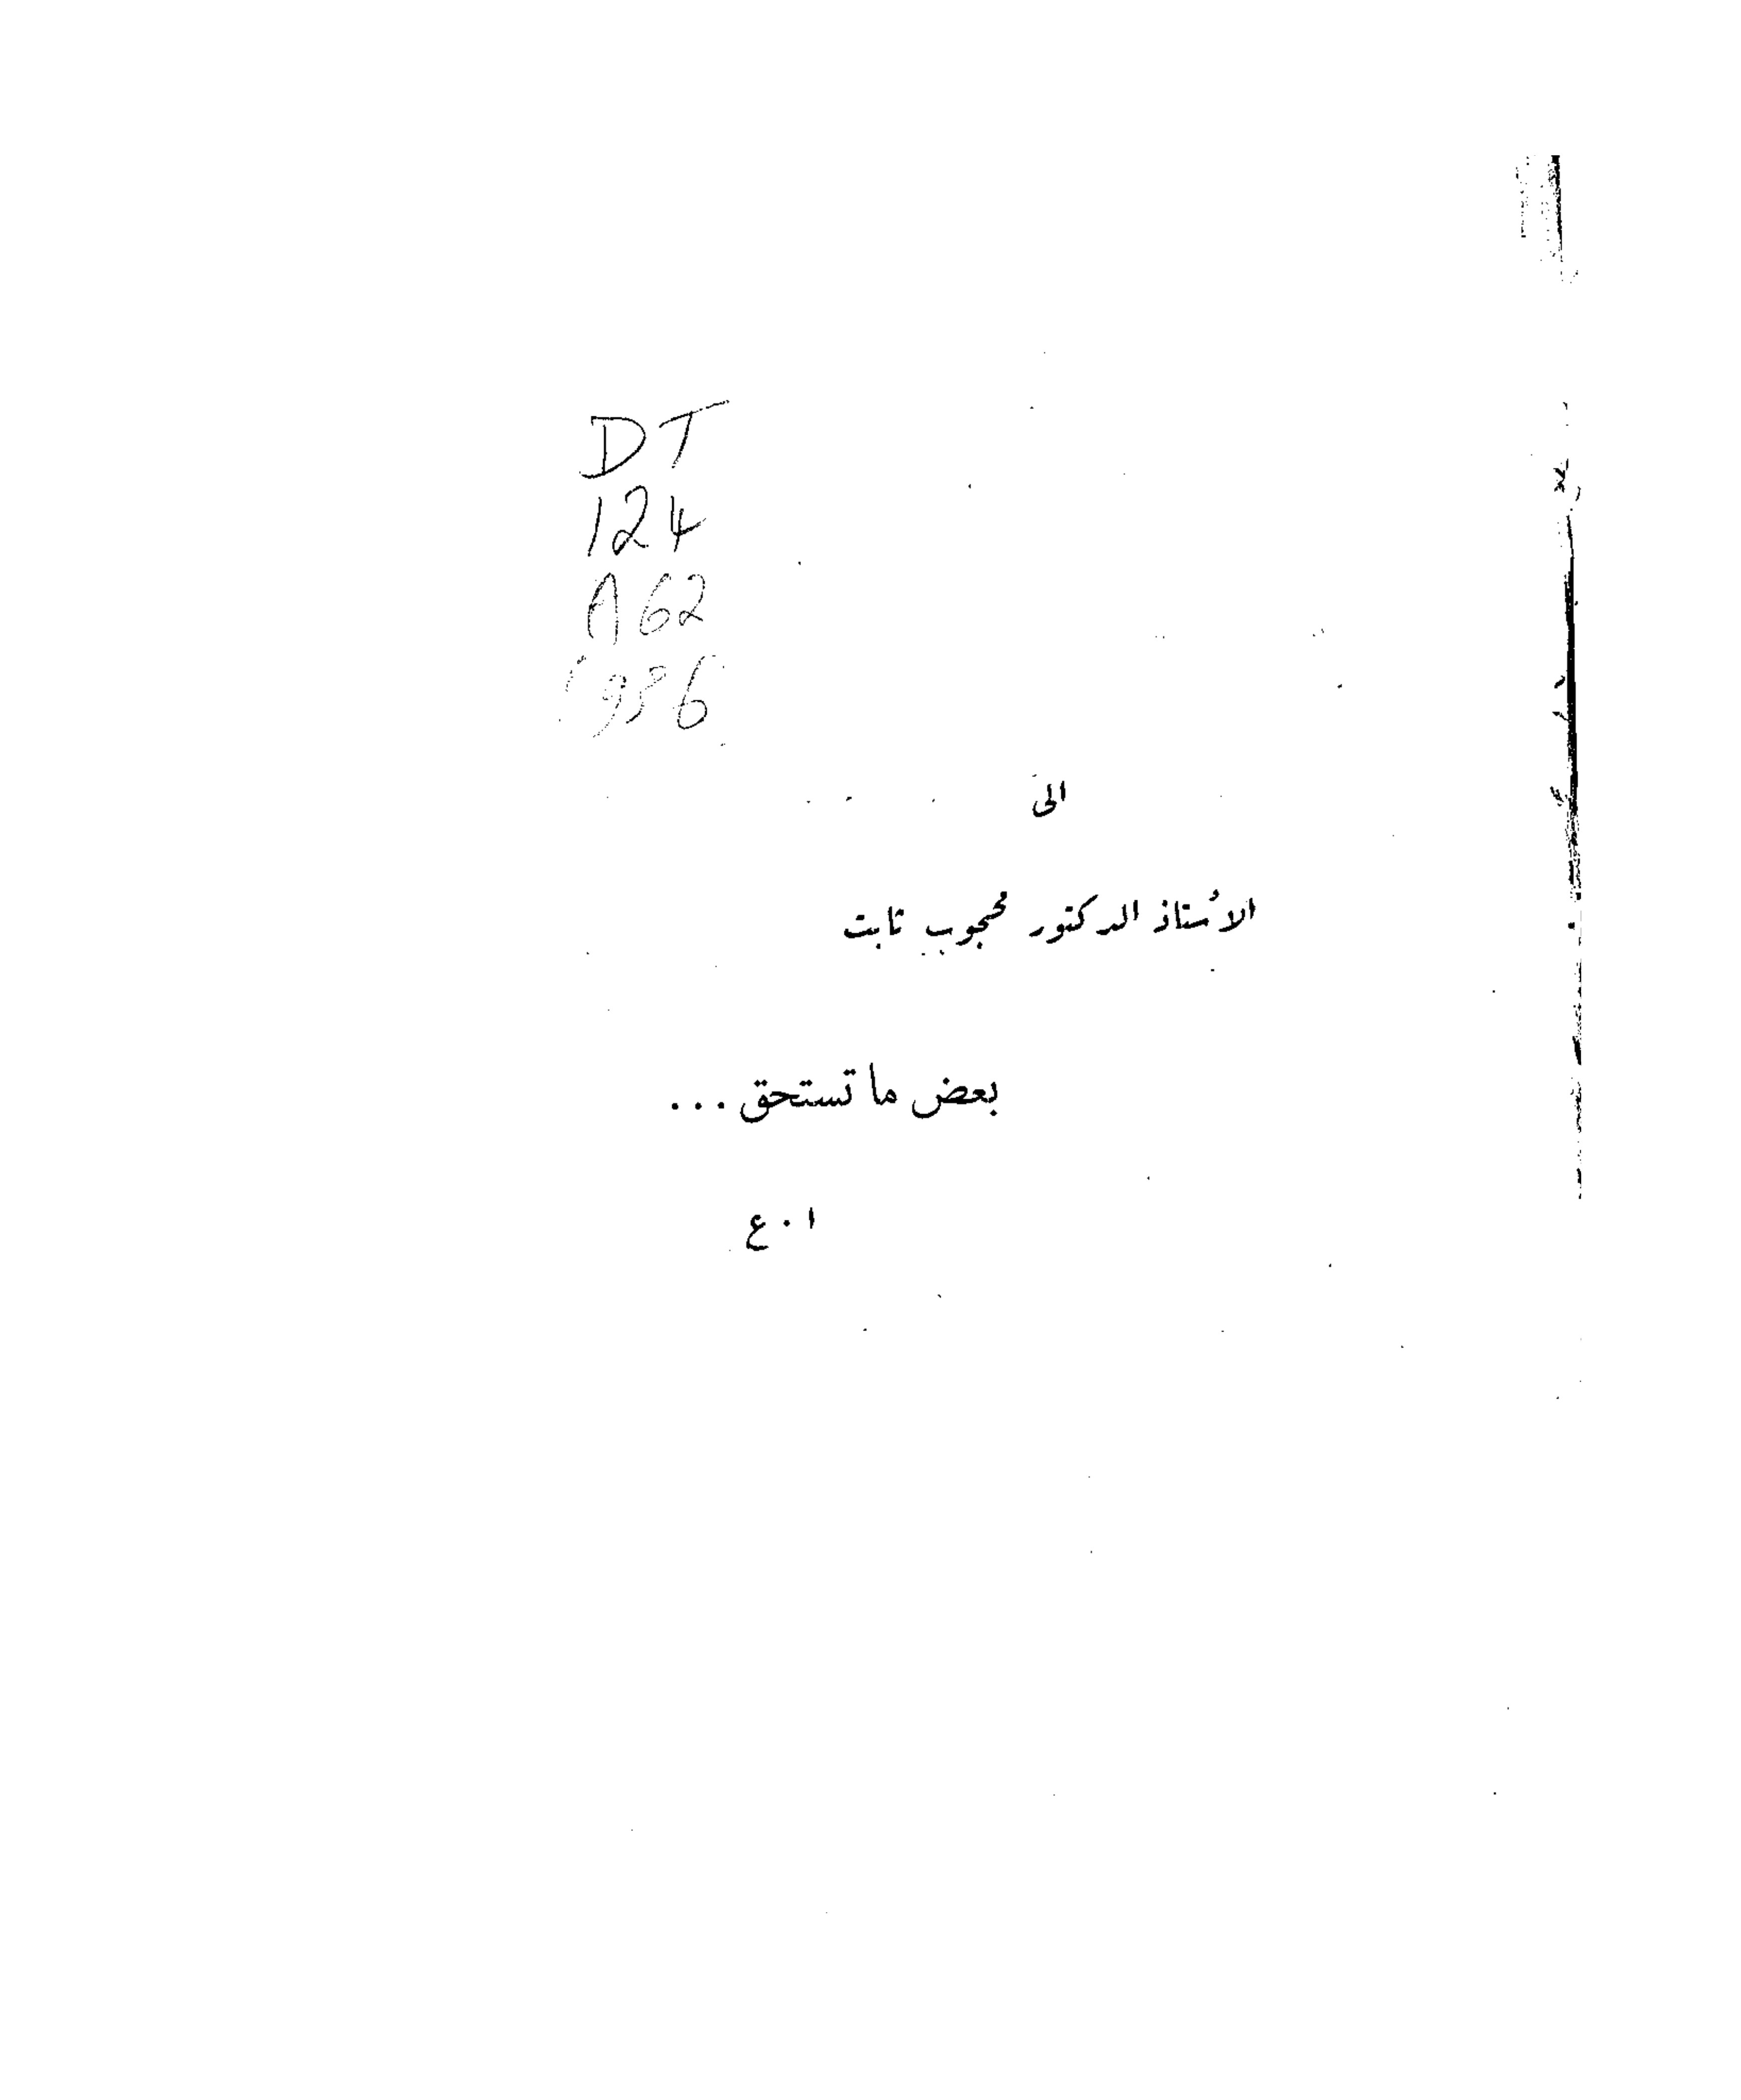 DT
124
A62
1936
الى
الأستاذ الدكتور محجوب ثابت
بعض ما تستحق ...
ا . ع